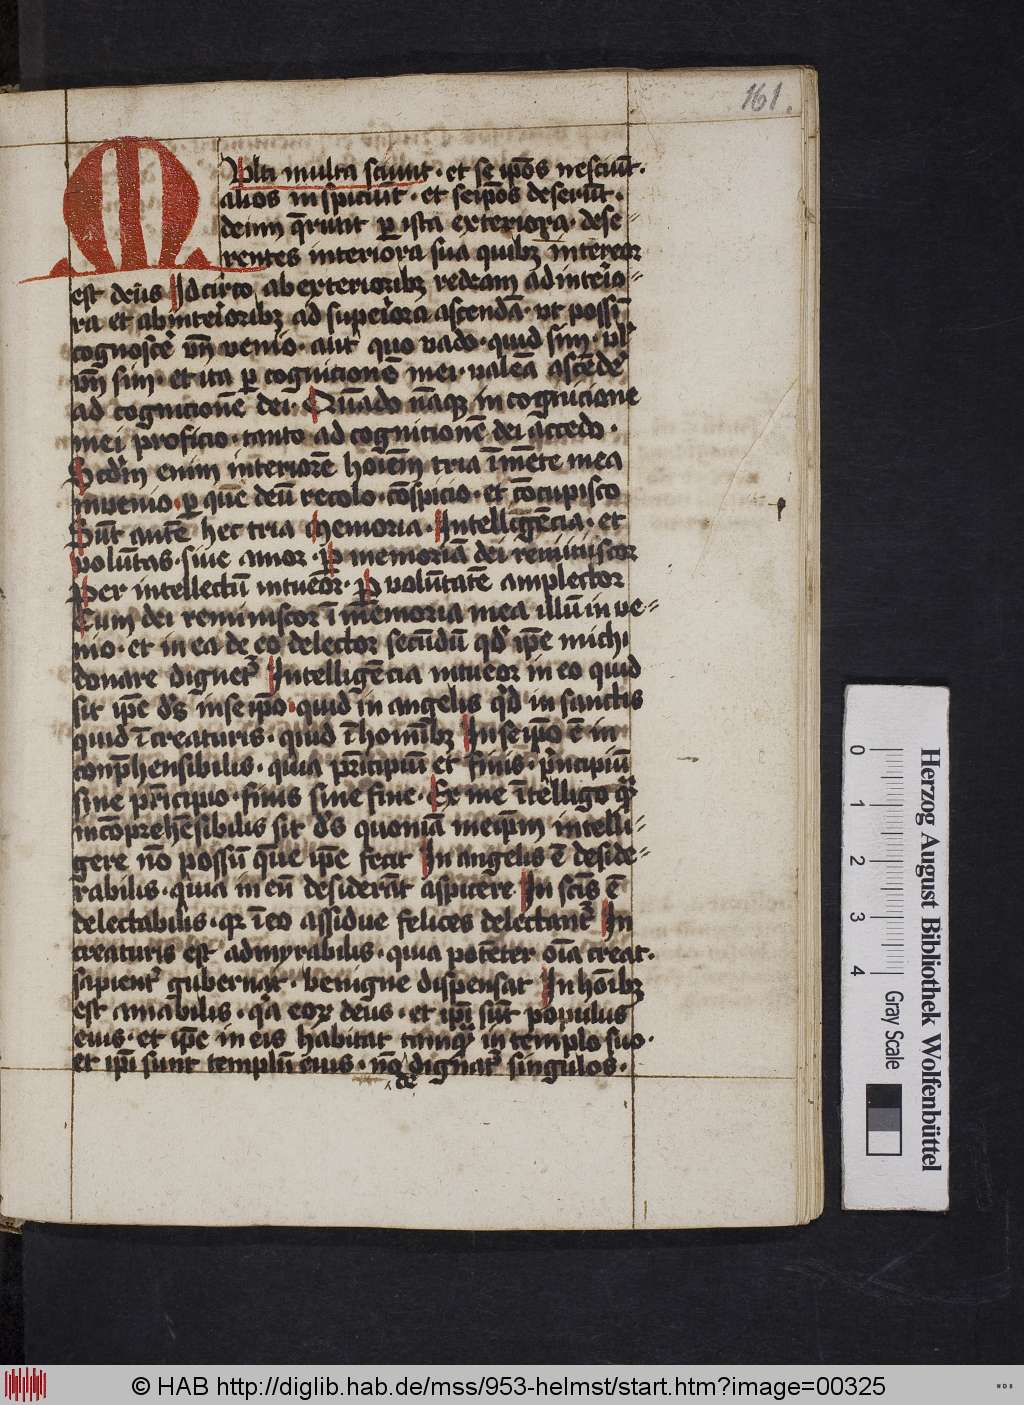 161.
MUlti multa sciunt · et se ip̄os nesciūt ·
alios inspiciūt · et seip̄os deserūt ·
deum q̄runt ꝑ ista exteriora · dese-
rentes interiora sua quibꝫ interior
est deus Idcirco ab exterioribꝫ redeam ad interio-
ra et ab interioribꝫ ad superiora ascendā · vt possī
cognoscere vn̄ venio · aut quo vado · quid sim · vl̓
vn̄ sim · et ita ꝑ cognicionē mei · valeā ascēdere
ad cognicionē dei · Quādo nāqꝫ in cognicione
mei proficio · tanto ad cognitionē dei accedo ·
Scd̓m enim interiorē hoīem̄ tria ī mēte mea
inuenio · ꝑ que deū recolo · cōspicio · et cōcupisco
Sūt autē hec tria Memoria · Intelligēcia · et
volūtas · siue amor · ꝑ memoriā dei reminiscor
Per intellectū intueor · ꝑ volūtatē amplector
Cum dei reminiscor ī memoria mea illū in ve-
nio · et in ea de eo delector secūdū qd̓ ip̄e michi
donare dignet᷑ Intelligēcia intueor in eo quid
sit ip̄e ds̄ in seip̄o · quid in angelis qd̓ in sanctis
quid ī creaturis · quid ī hominībꝫ In seip̄o ē in
conp̄hensibilis · quia prīcipiū et finis · prīncipiū
sine prīcipio · finis sine fine · Ex me ītelligo qͣ̄
incōprehēsibilis sit ds̄ quoniā meip̄m intelli-
gere nō possū que ip̄e fecit In angelis ē deside-
rabilis · quia in eū desiderāt aspicere In scīs ē
delectabilis · qꝛ ī eo assidue felices delectant᷑ In
creaturis est admyrabilis · quia potēter oīa creat ·
sapient᷑ gubernat · benigne dispensat In hoībꝫ
est amabilis · qͣ eoꝝ deus · et ip̄i sūt populus
eius · et ip̄e in eis habitat tamqͣ̄ in templo suo ·
et ip̄i sunt templū eius · nō dignat᷑ singulos ·
de
0 1 2 3 4
Gray Scale
Herzog August Bibliothek Wolfenbüttel
© HAB http://diglib.hab.de/mss/953-helmst/start.htm?image=00325